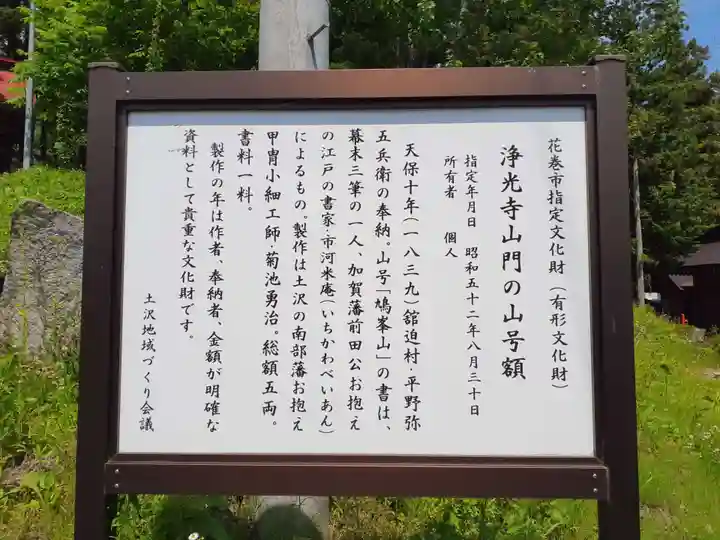 花巻市指定文化財（有形文化財）
浄光寺山門の山号額
指定年月日　昭和五十二年八月三十日
所有者　個人
天保十年(一八三九)舘迫村・平野弥
五兵衛の奉納。山号「鳩峯山」の書は、
幕末三筆の一人、加賀藩前田公お抱え
の江戸の書家・市河米庵(いちかわべいあん)
によるもの。製作は土沢の南部藩お抱え
甲冑小細工師・菊池勇治。総額五両。
書料一料。
製作の年は作者、奉納者、金額が明確な
資料として貴重な文化財です。
土沢地域づくり会議